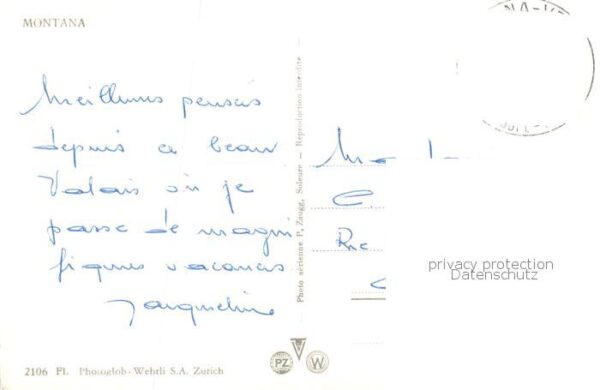 MONTANA
Meilleures pensées
depuis ce beau
Valais où je
passe de magni
fiques vacances
Jacqueline
Photo aérienne P. Zaugg, Soleure — Reproduction interdite
Rue
privacy protection
Datenschutz
PZ
W
2106 Fl. Photoglob-Wehrli S.A. Zurich